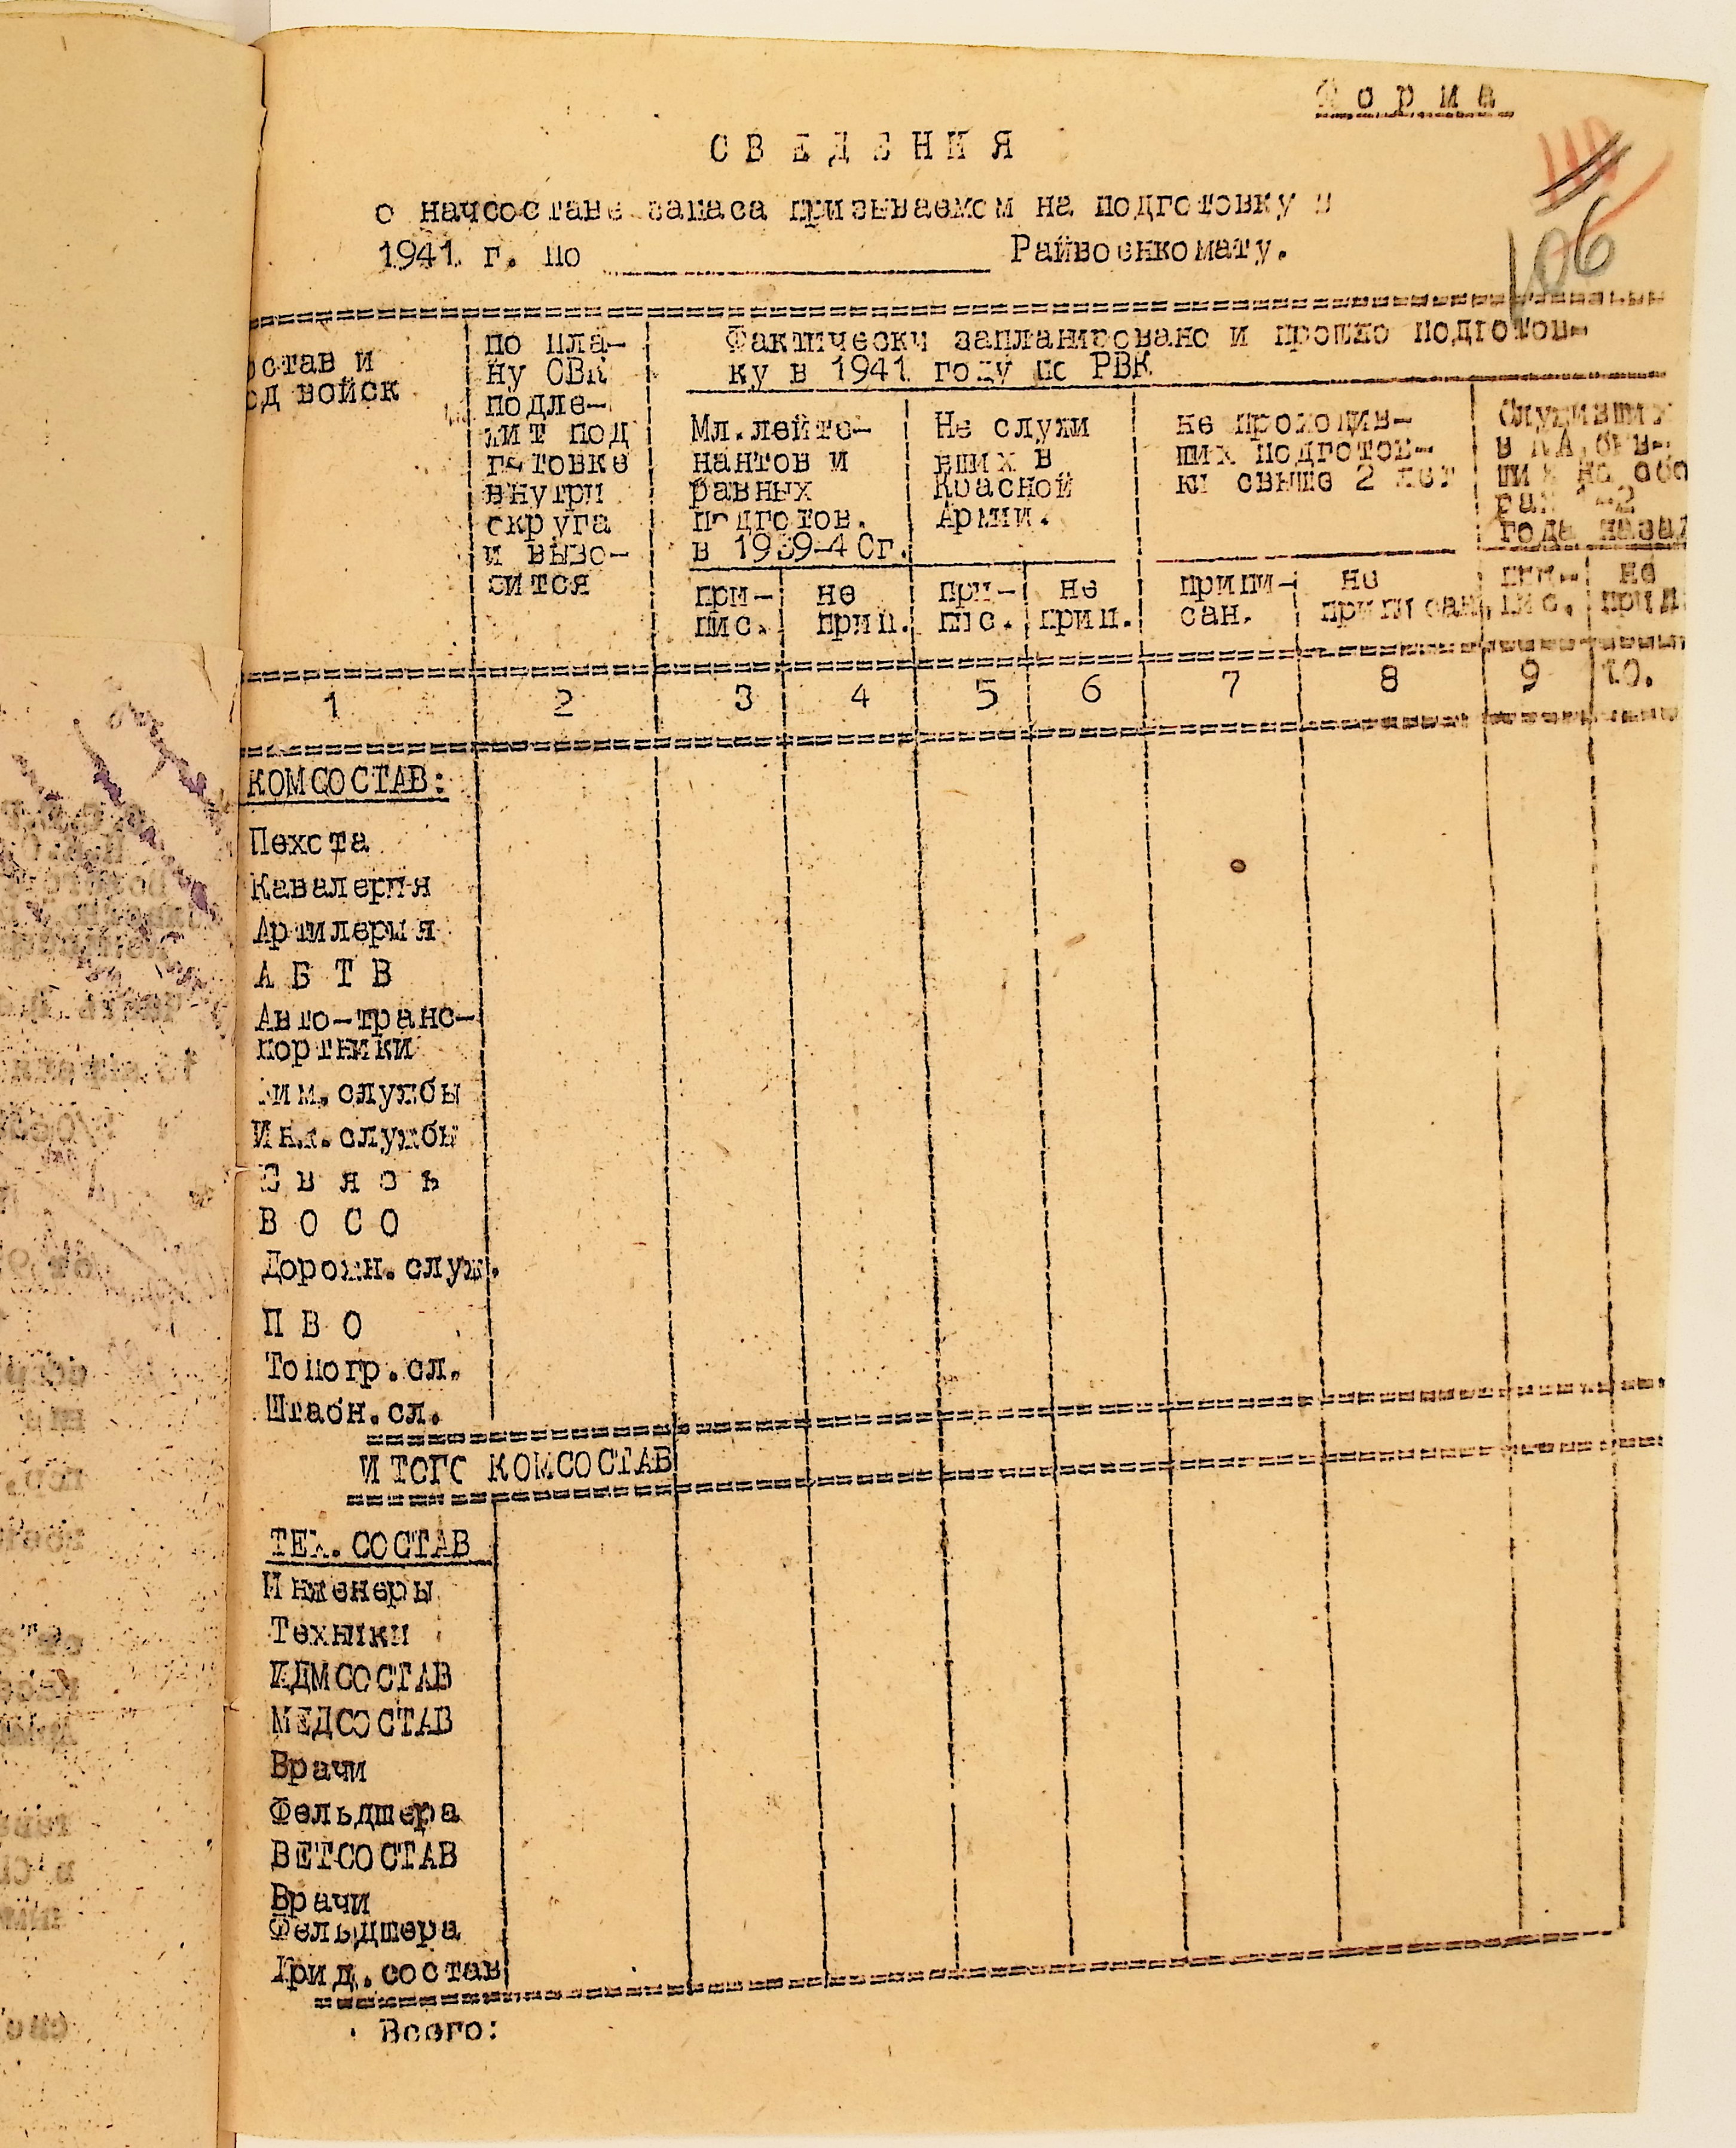 Форма
СВЕДЕНИЯ
106
о начсоставе запаса призываемом на подготовку в
1941 г. по ____________ Райвоенкомату.
остав и
од войск
по пла-
ну СВК
подле-
жит под
готовке
внутри
округа
и вызо-
вится
Фактически запланировано и прошло подготов-
ку в 1941 году по РВК
Мл.лейте-
нантов и
равных
подготов.
в 1939-40г.
Не служи
вших в
Красной
Армии.
не проходив-
ших подготов-
ки свыше 2 лет
Служивших
в КА, быв-
ших на сбо
рах 1-2
года назад
при-
пис.
не
прип.
при-
пис.
не
прип.
припи-
сан.
не
приписан.
при-
пис.
не
прип.
1 2 3 4 5 6 7 8 9 10.
КОМСОСТАВ:
Пехота
Кавалерия
Артилерия
А Б Т В
Авто-транс-
портники
хим.службы
Инж.службы
Связь
В О С О
Дорожн.служ.
П В О
Топогр.сл.
Штабн.сл.
ИТОГО КОМСОСТАВ
ТЕХ.СОСТАВ
Инженеры
Техники
АДМСОСТАВ
МЕДСОСТАВ
Врачи
Фельдшера
ВЕТСОСТАВ
Врачи
Фельдшера
Юрид.состав
Всего: